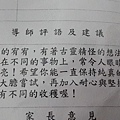 導師評語及建議
的宥宥，有著古靈精怪的想法
在不同的事物上，常令人眼睛
亮！希望你能一直保持純真的
大膽嘗試，再加入耐心與堅持
有不同的收穫喔！
家長意見